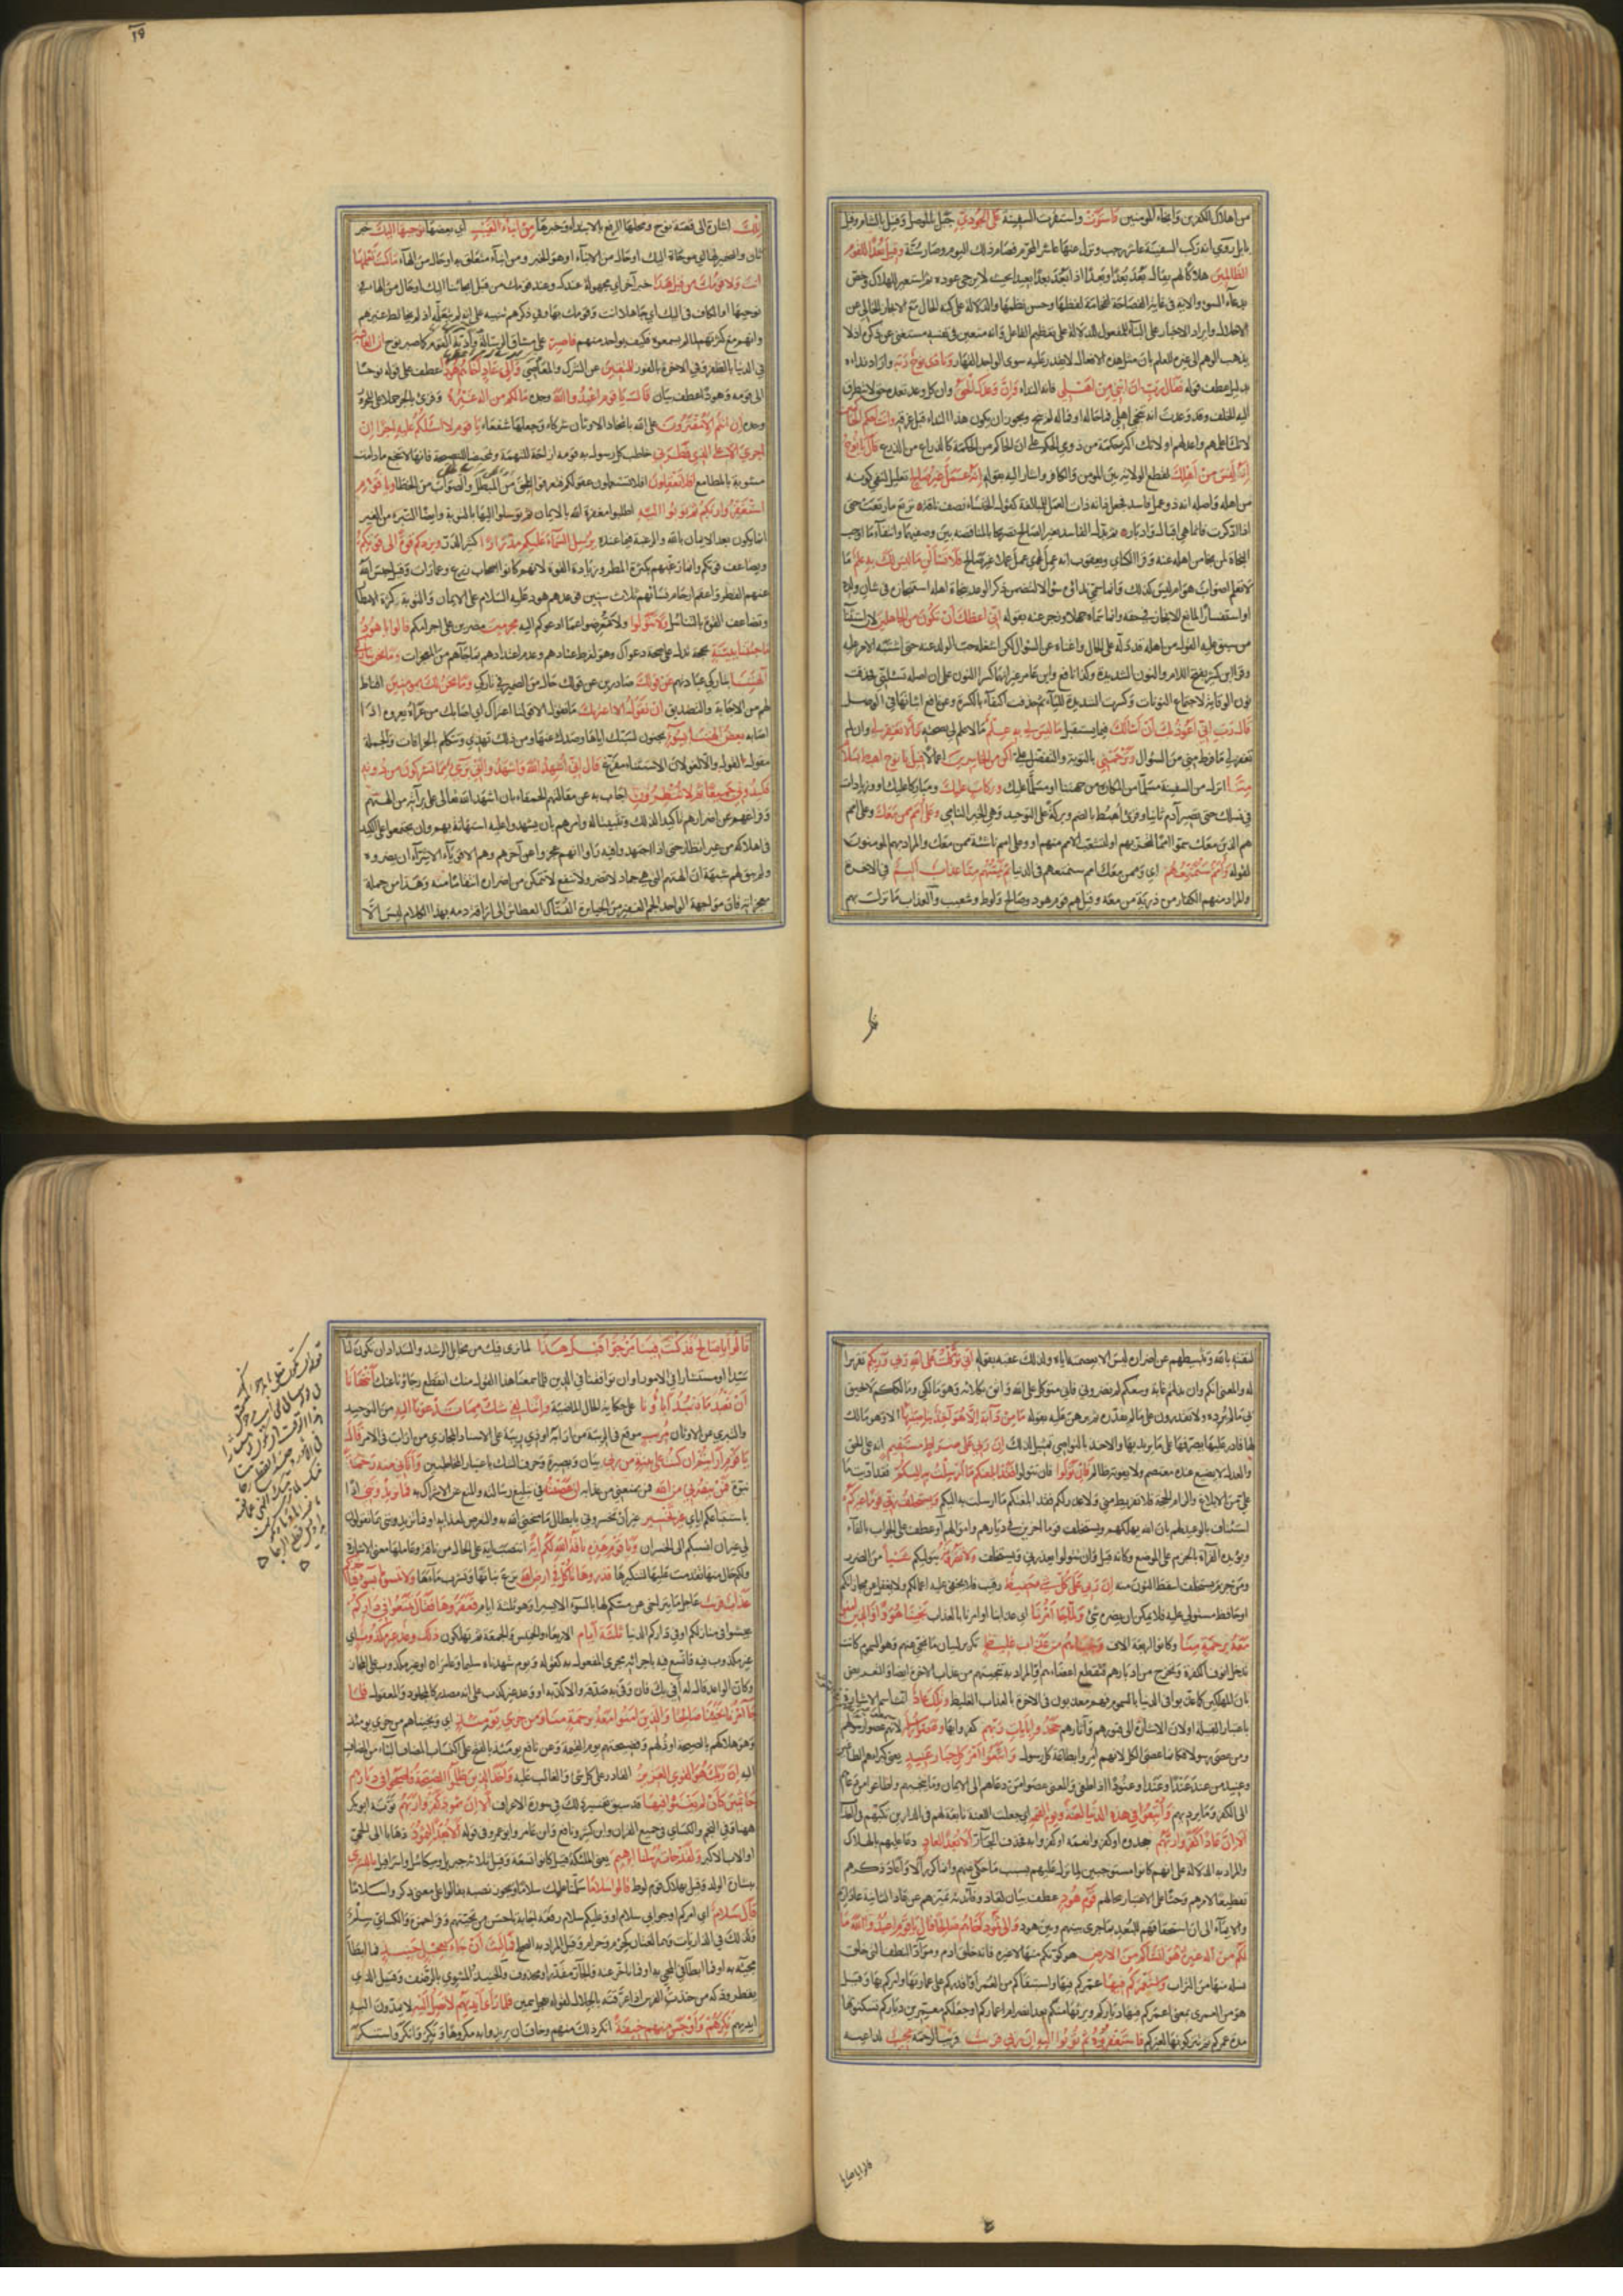 من اهلاك الكفرين وانجاء المومنين فاستوت واستقرت السفينة على الجودي جبل بالموصل وقيل بالشام وقيل
بابل روي انه ركب السفينة عاشر رجب ونزل عنها عاشر المحرم فصام ذلك اليوم وصار سنة وقيل بعدا للقوم
الظالمين هلاكا لهم يقال بعد بعدا وبعدا اذا بعد بعدا بعيدا بحيث لا يرجى عوده ثم استعير للهلاك وخص
بدعاء السوء والاية في غاية الفصاحة لفخامة لفظها وحسن نظمها والدلالة على كنه الحال مع الايجاز الخالي عن
الاخلال وايراد الاخبار على البناء للمفعول للدلالة على تعظيم الفاعل وانه متعين في نفسه مستغنى عن ذكره اذ لا
يذهب الوهم الى غيره للعلم بان مثل هذه الافعال لا يقدر عليه سوى الواحد القهار ونادى نوح ربه واراد نداءه
بدليل عطف قوله فقال رب ان ابني من اهلي فانه النداء وان وعدك الحق وان كل وعد تعده حق لا يتطرق
اليه الخلف وقد وعدت ان تنجي اهلي فما حاله او فما له لم ينج ويجوز ان يكون هذا النداء قبل غرقه وانت احكم الحاكمين
لانك اعلمهم واعدلهم او لانك اكثر حكمة من ذوي الحكم على ان الحاكم من الحكمة كالدارع من الدرع قال يا نوح
انه ليس من اهلك لقطع الولاية بين المومن والكافر واشار اليه بقوله انه عمل غير صالح فانه تعليل لنفي كونه
من اهله واصله انه ذو عمل فاسد فجعل ذاته ذات العمل للمبالغة كقول الخنساء تصف ناقة ترتع ما رتعت حتى
اذا ادكرت فانما هي اقبال وادبار ثم بدل الفاسد بغير الصالح تصريحا بالمناقضة بين وصفيهما وانتفاء ما اوجب
النجاة لمن نجا من اهله عنه وقرا الكسائي ويعقوب انه عمل اي عمل عملا غير صالح فلا تسألن ما ليس لك به علم ما
لا تعلم اصواب هو ام ليس كذلك وانما سمي نداؤه سؤالا لتضمن ذكر الوعد بنجاة اهله استنجازه في شان ولده
او استفسار المانع للانجاز في حقه وانما سماه جهلا وزجر عنه بقوله اني اعظك ان تكون من الجاهلين لان استثناء
من سبق عليه القول من اهله قد دله على الحال واغناه عن السؤال لكن اشغله حب الولد عنه حتى اشتبه الامر عليه
وقرا ابن كثير بفتح اللام والنون الشديدة وكذا نافع وابن عامر غير انهما كسرا النون على ان اصله تسئلنني فحذفت
نون الوقاية لاجتماع النونات وكسرت الشديدة للياء ثم حذفت اكتفاء بالكسرة وعن نافع اثباتها في الوصل
قال رب اني اعوذ بك ان اسألك فيما يستقبل ما ليس لي به علم ما لا علم لي بصحته والا تغفر لي وان لم
تغفر لي ما فرط مني من السؤال وترحمني بالتوبة والتفضل علي اكن من الخاسرين اعمالا قيل يا نوح اهبط بسلام
منا انزل من السفينة مسلما من المكاره من جهتنا او مسلما عليك وبركات عليك ومباركا عليك او زيادات
في نسلك حتى تصير آدم ثانيا وقرئ اهبط بالضم وبركة على التوحيد وهي الخير النامي وعلى امم ممن معك وعلى امم
هم الذين معك سموا امما لتحزبهم او لتشعب الامم منهم او وعلى امم ناشئة ممن معك والمراد بهم المومنون
لقوله وامم سنمتعهم اي وممن معك امم سنمتعهم في الدنيا ثم يمسهم منا عذاب اليم في الاخرة
والمراد منهم الكفار من ذرية من معه وقيل هم قوم هود وصالح ولوط وشعيب والعذاب ما نزل بهم
تلك اشارة الى قصة نوح ومحلها الرفع بالابتداء وخبرها من انباء الغيب اي بعضها نوحيها اليك خبر
ثان والضمير لها اي موحاة اليك او حال من الانباء او هو الخبر ومن انباء متعلق به او حال من الهاء ما كنت تعلمها
انت ولا قومك من قبل هذا خبر آخر اي مجهولة عندك وعند قومك من قبل ايحائنا اليك او حال من الهاء في
نوحيها او الكاف في اليك اي جاهلا انت وقومك بها وفي ذكرهم تنبيه على انه لم يتعلمه اذ لم يخالط غيرهم
وانهم مع كثرتهم لما لم يسمعوه فكيف بواحد منهم فاصبر على مشاق الرسالة واذية القوم كما صبر نوح ان العاقبة
في الدنيا بالظفر وفي الاخرة بالفوز للمتقين عن الشرك والمعاصي والى عاد اخاهم هودا عطف على قوله نوحا
الى قومه وهودا عطف بيان قال يا قوم اعبدوا الله وحده ما لكم من اله غيره وقرئ بالجر حملا على المجرور
وحده ان انتم الا مفترون على الله باتخاذ الاوثان شركاء وجعلها شفعاء يا قوم لا اسئلكم عليه اجرا ان
اجري الا على الذي فطرني خاطب كل رسول به قومه ازاحة للتهمة وتمحيضا للنصيحة فانها لا تنجع ما دامت
مشوبة بالمطامع افلا تعقلون افلا تستعملون عقولكم فتعرفوا المحق من المبطل والصواب من الخطا ويا قوم
استغفروا ربكم ثم توبوا اليه اطلبوا مغفرة الله بالايمان ثم توسلوا اليها بالتوبة وايضا التبرء من الغير
انما يكون بعد الايمان بالله والرغبة فيما عنده يرسل السماء عليكم مدرارا كثير الدر ويزدكم قوة الى قوتكم
ويضاعف قوتكم وانما رغبهم بكثرة المطر وزيادة القوة لانهم كانوا اصحاب زروع وعمارات وقيل حبس الله
عنهم القطر واعقم ارحام نسائهم ثلاث سنين فوعدهم هود عليه السلام على الايمان والتوبة بكثرة الامطار
وتضاعف القوة بالتناسل ولا تتولوا ولا تعرضوا عما ادعوكم اليه مجرمين مصرين على اجرامكم قالوا يا هود
ما جئتنا ببينة بحجة تدل على صحة دعواك وهو لفرط عنادهم وعدم اعتدادهم بما جاءهم من المعجزات وما نحن بتاركي
آلهتنا بتاركي عبادتهم عن قولك صادرين عن قولك حال من الضمير في تاركي وما نحن لك بمومنين اقناط
لهم من الاجابة والتصديق ان نقول الا اعتراك ما نقول الا قولنا اعتراك اي اصابك من عراه يعروه اذا
اصابه بعض آلهتنا بسوء بجنون لسبك اياها وصدك عنها ومن ذلك تهذي وتتكلم بالخرافات والجملة
مقول القول والا لغو لان الاستثناء مفرغ قال اني اشهد الله واشهدوا اني بريء مما تشركون من دونه
فكيدوني جميعا ثم لا تنظرون اجاب به عن مقالتهم الحمقاء بان اشهد الله تعالى على براءته من الهتهم
وفراغهم عن اضراره تاكيدا لذلك وتثبيتا له وامرهم بان يشهدوا عليه استهانة بهم وان يجتمعوا على الكيد
في اهلاكه من غير انظار حتى اذا اجتهدوا فيه وراوا انهم عجزوا عن آخرهم وهم الاقوياء الاشداء ان يضروه
ولم يبق لهم شبهة ان الهتهم التي هي جماد لا تضر ولا تنفع لا تتمكن من اضراره انتقاما منه وهذا من جملة
معجزاته فان مواجهة الواحد الجم الغفير من الجبابرة الفتاك العطاش الى اراقة دمه بهذا الكلام ليس الا
لثقته بالله وتثبيطهم عن اضراره ليس الا بعصمته اياه ولذلك عقبه بقوله اني توكلت على الله ربي وربكم تقريرا
له والمعنى انكم وان بذلتم غاية وسعكم لم تضروني فاني متوكل على الله واثق بكلاءته وهو مالكي ومالككم لا يحيق
بي ما لم يرده ولا تقدرون على ما لم يقدره ثم برهن عليه بقوله ما من دابة الا هو آخذ بناصيتها الا وهو مالك
لها قادر عليها يصرفها على ما يريد بها والاخذ بالنواصي تمثيل لذلك ان ربي على صراط مستقيم انه على الحق
والعدل لا يضيع عنده معتصم ولا يفوته ظالم فان تولوا فان تتولوا فقد ابلغتكم ما ارسلت به اليكم فقد اديت ما
علي من الابلاغ والزام الحجة فلا تفريط مني ولا عذر لكم فقد ابلغتكم ما ارسلت به اليكم ويستخلف ربي قوما غيركم
استئناف بالوعيد لهم بان الله يهلكهم ويستخلف قوما آخرين في ديارهم واموالهم او عطف على الجواب بالفاء
ويؤيده القراءة بالجزم على الموضع وكانه قيل فان تتولوا يعذرني ويستخلف ولا تضرونه بتوليكم شيئا من الضرر
ومن جزم يستخلف اسقط النون منه ان ربي على كل شيء حفيظ رقيب فلا يخفى عليه اعمالكم ولا يغفل عن مجازاتكم
او حافظ مستولي عليه فلا يمكن ان يضره شئ ولما جاء امرنا اي عذابنا او امرنا بالعذاب نجينا هودا والذين آمنوا
معه برحمة منا وكانوا اربعة آلاف ونجيناهم من عذاب غليظ تكرير لبيان ما نجاهم عنه وهو السموم كانت
تدخل انوف الكفرة وتخرج من ادبارهم فتقطع اعضاءهم او المراد به تنجيتهم من عذاب الاخرة ايضا والتعريض
بان المهلكين كما عذبوا في الدنيا بالسموم فهم معذبون في الاخرة بالعذاب الغليظ وتلك عاد انث اسم الاشارة
باعتبار القبيلة او لان الاشارة الى قبورهم وآثارهم جحدوا بايات ربهم كفروا بها وعصوا رسله لانهم عصوا رسولهم
ومن عصى رسولا فكانما عصى الكل لانهم امروا بطاعة كل رسول واتبعوا امر كل جبار عنيد يعني كبراءهم الطاغين
وعنيد من عند عندا وعندا وعنودا اذا طغى والمعنى عصوا من دعاهم الى الايمان وما ينجيهم واطاعوا من دعاهم
الى الكفر وما يرديهم واتبعوا في هذه الدنيا لعنة ويوم القيمة اي جعلت اللعنة تابعة لهم في الدارين تكبهم في العذاب
الا ان عادا كفروا ربهم جحدوه او كفروا نعمه او كفروا به فحذف الجار الا بعدا لعاد دعاء عليهم بالهلاك
والمراد به الدلالة على انهم كانوا مستوجبين لما نزل عليهم بسبب ما حكى عنهم وانما كرر الا واعاد ذكرهم
تفظيعا لامرهم وحثا على الاعتبار بحالهم قوم هود عطف بيان لعاد وفائدته تميزهم عن عاد الثانية عاد ارم
والايماء الى ان استحقاقهم للبعد بما جرى بينهم وبين هود والى ثمود اخاهم صالحا قال يا قوم اعبدوا الله ما
لكم من اله غيره هو انشأكم من الارض هو كونكم منها لا غيره فانه خلق ادم ومواد النطف التي خلق
نسله منها من التراب واستعمركم فيها عمركم فيها واستبقاكم من العمر او اقدركم على عمارتها وامركم بها وقيل
هو من العمرى بمعنى اعمركم فيها دياركم ويرثها منكم بعد انصرام اعماركم او جعلكم معمرين دياركم تسكنونها
مدة عمركم ثم تتركونها لغيركم فاستغفروه ثم توبوا اليه ان ربي قريب قريب الرحمة مجيب لداعيه
قالوا يا صالح
قالوا يا صالح قد كنت فينا مرجوا قبل هذا لما نرى فيك من مخايل الرشد والسداد ان تكون لنا
سيدا او مستشارا في الامور او ان توافقنا في الدين فلما سمعنا هذا القول منك انقطع رجاؤنا عنك اتنهانا
ان نعبد ما يعبد آباؤنا على حكاية الحال الماضية واننا لفي شك مما تدعونا اليه من التوحيد
والتبري عن الاوثان مريب موقع في الريبة من ارابه او ذي ريبة على الاسناد المجازي من اراب في الامر قال
يا قوم ارايتم ان كنت على بينة من ربي بيان وبصيرة وحرف الشك باعتبار المخاطبين وآتاني منه رحمة
نبوة فمن ينصرني من الله فمن يمنعني من عذابه ان عصيته في تبليغ رسالته والمنع عن الاشراك به فما تزيدونني اذا
باستتباعكم اياي غير تخسير غير ان تخسروني بابطال ما منحني الله به والتعرض لعذابه او فما تزيدونني بما تقولون
لي غير ان انسبكم الى الخسران ويا قوم هذه ناقة الله لكم آية انتصب آية على الحال من ناقة وعاملها معنى الاشارة
ولكم حال منها تقدمت عليها لتنكيرها فذروها تاكل في ارض الله ترع نباتها وتشرب ماءها ولا تمسوها بسوء فياخذكم
عذاب قريب عاجل لا يتراخى عن مسكم لها بالسوء الا يسيرا وهو ثلثة ايام فعقروها فقال تمتعوا في داركم
عيشوا في منازلكم او في داركم الدنيا ثلثة ايام الاربعاء والخميس والجمعة ثم تهلكون ذلك وعد غير مكذوب اي
غير مكذوب فيه فاتسع فيه باجرائه مجرى المفعول به كقوله ويوم شهدناه سليما وعامرا او غير مكذوب على المجاز
وكان الواعد قال له افي بك فان وفى به صدقه والا كذبه او وعد غير كذب على انه مصدر كالمجلود والمعقول فلما
جاء امرنا نجينا صالحا والذين آمنوا معه برحمة منا ومن خزي يومئذ اي ونجيناهم من خزي يومئذ
وهو هلاكهم بالصيحة او ذلهم وفضيحتهم يوم القيمة وعن نافع يومئذ بالفتح على اكتساب المضاف البناء من المضاف
اليه ان ربك هو القوي العزيز القادر على كل شئ والغالب عليه واخذ الذين ظلموا الصيحة فاصبحوا في ديارهم
جاثمين كان لم يغنوا فيها قد سبق تفسير ذلك في سورة الاعراف الا ان ثمود كفروا ربهم نونه ابو بكر
ههنا وفي النجم والكسائي في جميع القران وابن كثير ونافع وابن عامر وابو عمرو في قوله الا بعدا لثمود ذهابا الى الحي
او الاب الاكبر ولقد جاءت رسلنا ابرهيم يعني الملئكة قيل كانوا تسعة وقيل ثلاثة جبريل وميكائيل واسرافيل بالبشرى
ببشارة الولد وقيل بهلاك قوم لوط قالوا سلاما سلمنا عليك سلاما ويجوز نصبه بقالوا على معنى ذكروا سلاما
قال سلام اي امركم او جوابي سلام او وعليكم سلام رفعه اجابة باحسن من تحيتهم وقرا حمزة والكسائي سلم
وكذلك في الذاريات وهما لغتان كحرم وحرام وقيل المراد به الصلح فما لبث ان جاء بعجل حنيذ فما ابطا
مجيئه به او فما ابطا في المجئ به او فما تاخر عنه والجار مقدر او محذوف والحنيذ المشوي بالرضف وقيل الذي
يقطر ودكه من حنذت الفرس اذا عرقته بالجلال لقوله بعجل سمين فلما راى ايديهم لا تصل اليه لا يمدون اليه
ايديهم نكرهم واوجس منهم خيفة انكر ذلك منهم وخاف ان يريدوا به مكروها ونكر وانكر واستنكر